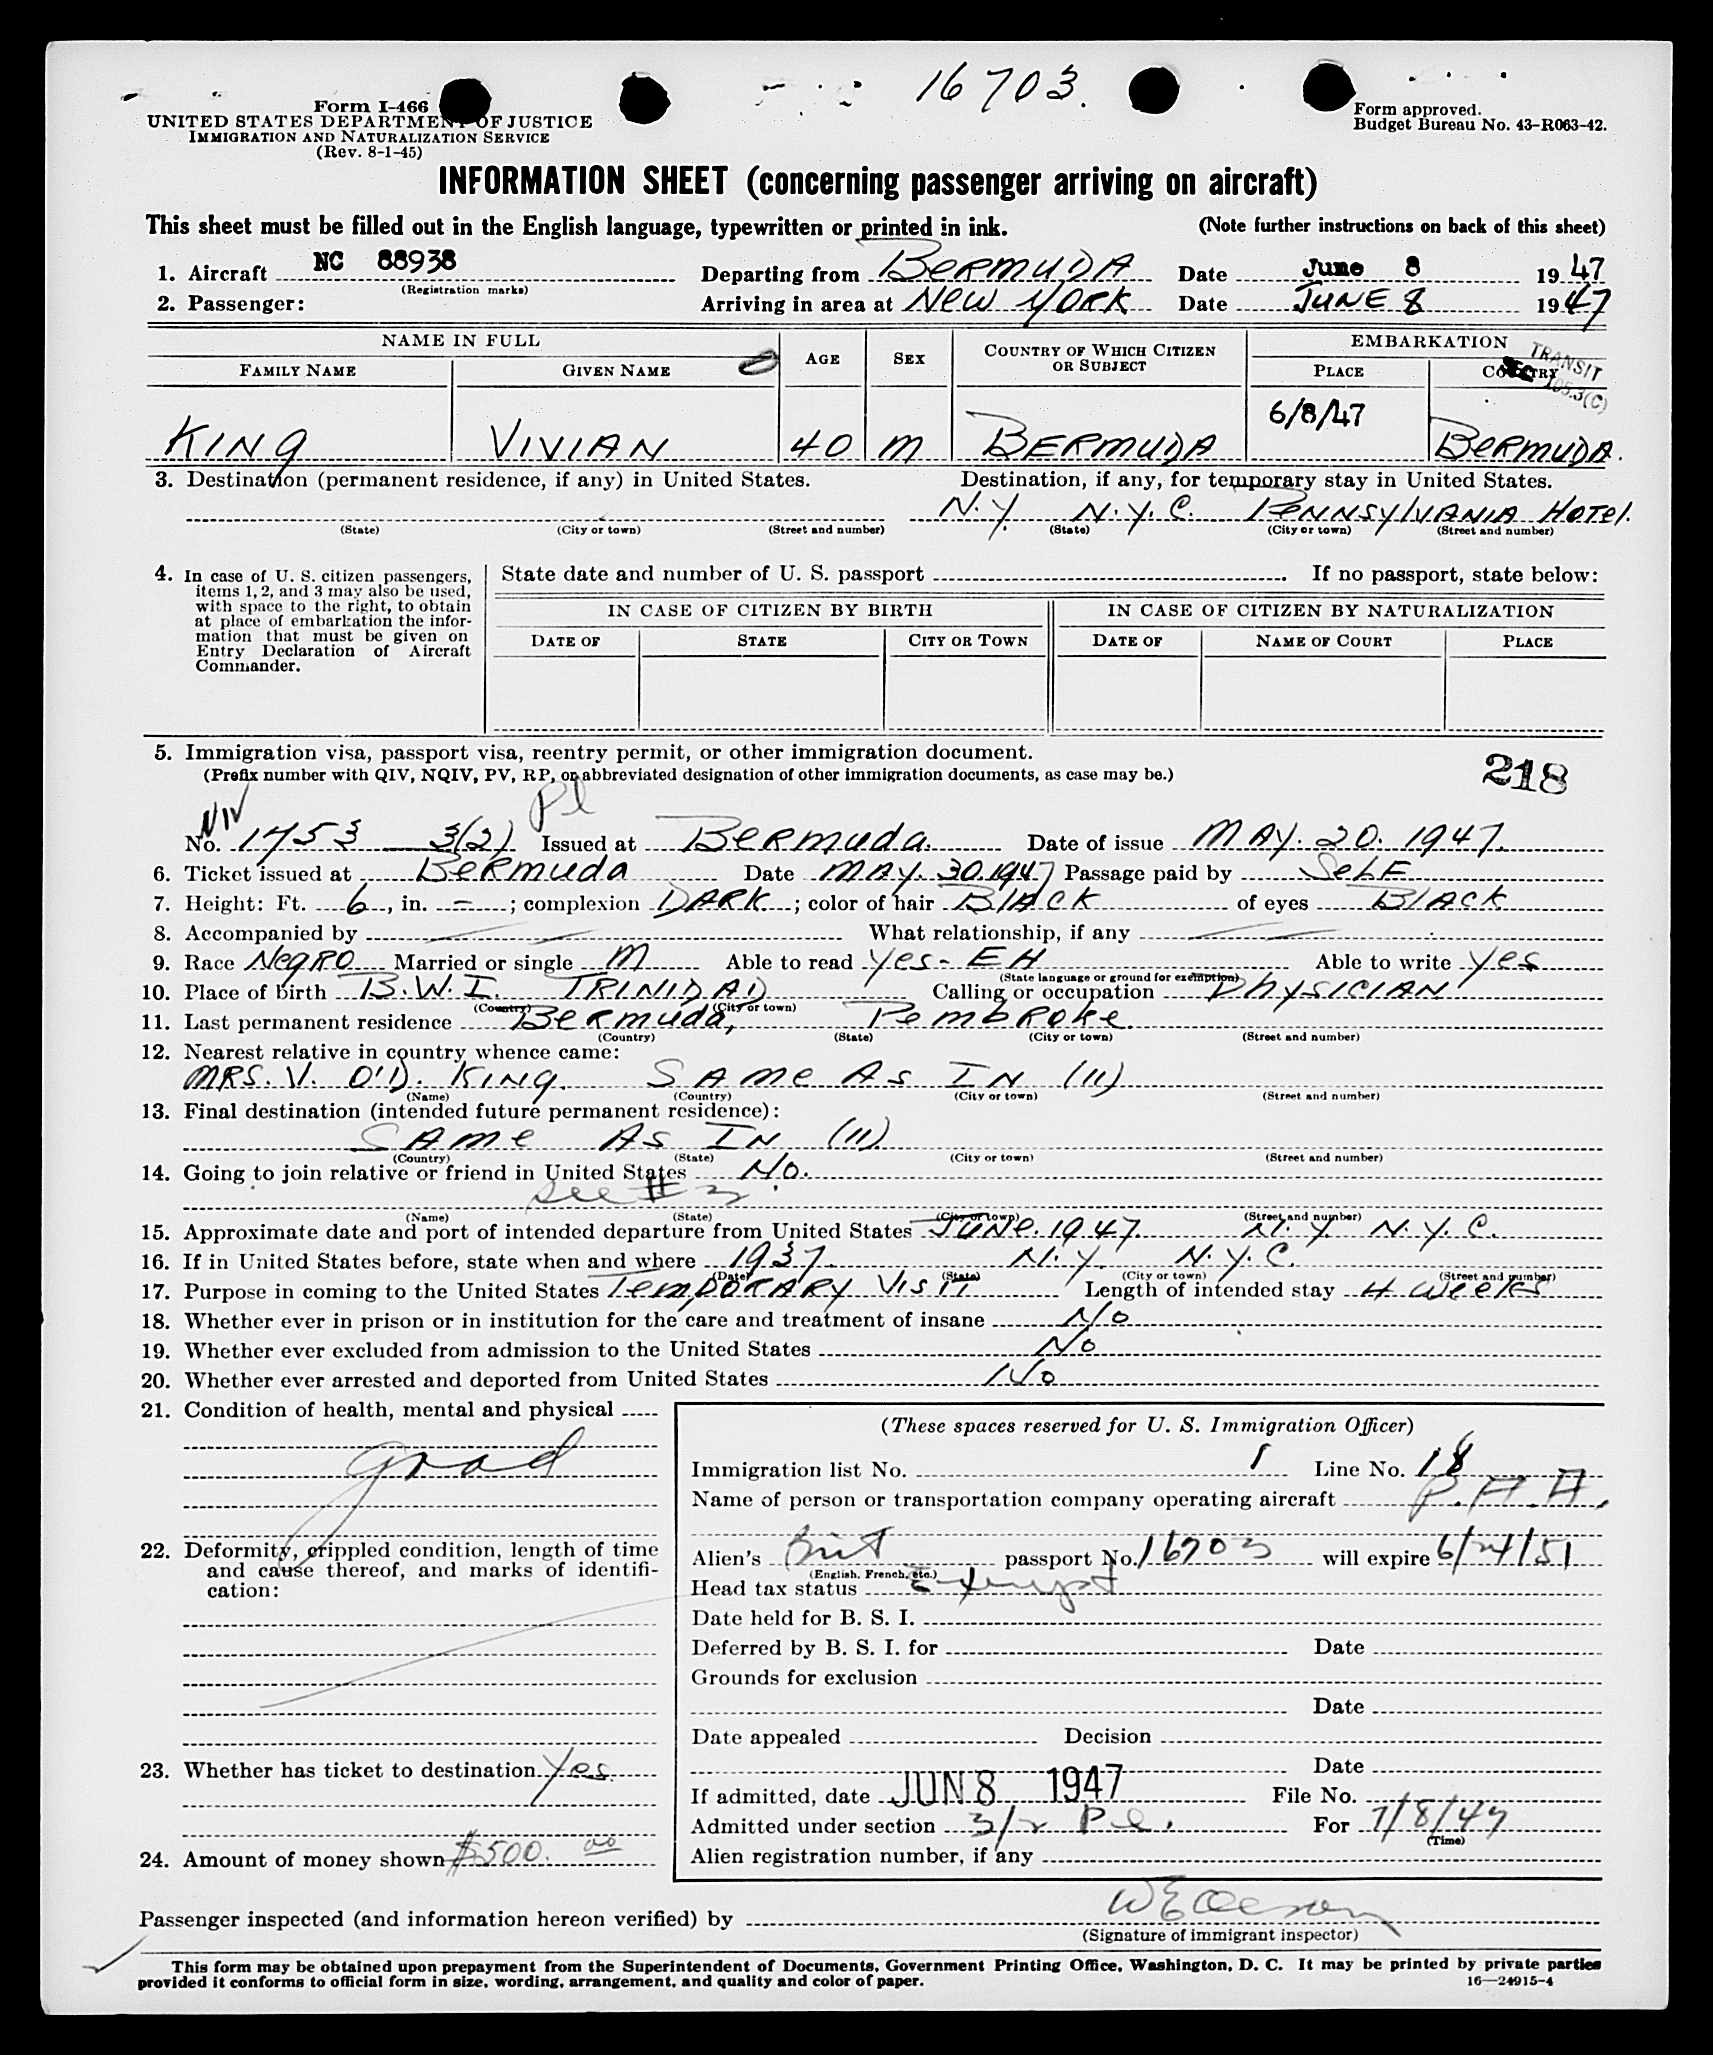 16703.
Form I-466
UNITED STATES DEPARTMENT OF JUSTICE
IMMIGRATION AND NATURALIZATION SERVICE
(Rev. 8-1-45)
Form approved.
Budget Bureau No. 43-R063-42.
INFORMATION SHEET (concerning passenger arriving on aircraft)
This sheet must be filled out in the English language, typewritten or printed in ink. (Note further instructions on back of this sheet)
1. Aircraft NC 88938 Departing from BERMUDA Date June 8 1947
(Registration marks)
2. Passenger: Arriving in area at NEW YORK Date JUNE 8 1947
NAME IN FULL AGE SEX COUNTRY OF WHICH CITIZEN OR SUBJECT EMBARKATION
FAMILY NAME GIVEN NAME PLACE COUNTRY
TRANSIT
SEC 105.3(C)
6/8/47
KING VIVIAN 40 M BERMUDA BERMUDA.
3. Destination (permanent residence, if any) in United States. Destination, if any, for temporary stay in United States.
N.Y. N.Y.C. PENNSYLVANIA HOTEL.
(State) (City or town) (Street and number) (State) (City or town) (Street and number)
4. In case of U. S. citizen passengers, items 1, 2, and 3 may also be used, with space to the right, to obtain at place of embarkation the information that must be given on Entry Declaration of Aircraft Commander.
State date and number of U. S. passport . If no passport, state below:
IN CASE OF CITIZEN BY BIRTH IN CASE OF CITIZEN BY NATURALIZATION
DATE OF STATE CITY OR TOWN DATE OF NAME OF COURT PLACE
5. Immigration visa, passport visa, reentry permit, or other immigration document.
(Prefix number with QIV, NQIV, PV, RP, or abbreviated designation of other immigration documents, as case may be.)
218
NIV Pl
No. 1753 3(2) Issued at BERMUDA. Date of issue MAY. 20. 1947.
6. Ticket issued at BERMUDA Date MAY. 30. 1947 Passage paid by SELF
7. Height: Ft. 6, in. -; complexion DARK; color of hair BLACK of eyes BLACK
8. Accompanied by What relationship, if any
9. Race NEGRO Married or single M Able to read YES- EH Able to write YES
(State language or ground for exemption)
10. Place of birth B.W.I. TRINIDAD Calling or occupation PHYSICIAN
(Country) (City or town)
11. Last permanent residence BERMUDA, PEMBROKE.
(Country) (State) (City or town) (Street and number)
12. Nearest relative in country whence came:
MRS. V. O'D. KING. SAME AS IN (11)
(Name) (Country) (City or town) (Street and number)
13. Final destination (intended future permanent residence):
SAME AS IN (11)
(Country) (State) (City or town) (Street and number)
14. Going to join relative or friend in United States NO.
see # 3
(Name) (State) (City or town) (Street and number)
15. Approximate date and port of intended departure from United States JUNE. 1947. N.Y. N.Y.C.
16. If in United States before, state when and where 1937. N.Y. N.Y.C.
(Date) (State) (City or town) (Street and number)
17. Purpose in coming to the United States TEMPORARY VISIT Length of intended stay 4 WEEKS
18. Whether ever in prison or in institution for the care and treatment of insane NO
19. Whether ever excluded from admission to the United States NO
20. Whether ever arrested and deported from United States NO
21. Condition of health, mental and physical
good
22. Deformity, crippled condition, length of time and cause thereof, and marks of identification:
23. Whether has ticket to destination Yes.
24. Amount of money shown $500.00
(These spaces reserved for U. S. Immigration Officer)
Immigration list No. 1 Line No. 18
Name of person or transportation company operating aircraft P.A.A.
Alien's Brit passport No. 16703 will expire 6/24/51
(English, French, etc.)
Head tax status Exempt
Date held for B. S. I.
Deferred by B. S. I. for Date
Grounds for exclusion
Date
Date appealed Decision
Date
If admitted, date JUN 8 1947 File No.
Admitted under section 3/2 Pl. For 7/8/47
(Time)
Alien registration number, if any
Passenger inspected (and information hereon verified) by
(Signature of immigrant inspector)
This form may be obtained upon prepayment from the Superintendent of Documents, Government Printing Office, Washington, D. C. It may be printed by private parties
provided it conforms to official form in size, wording, arrangement, and quality and color of paper. 16—24915-4